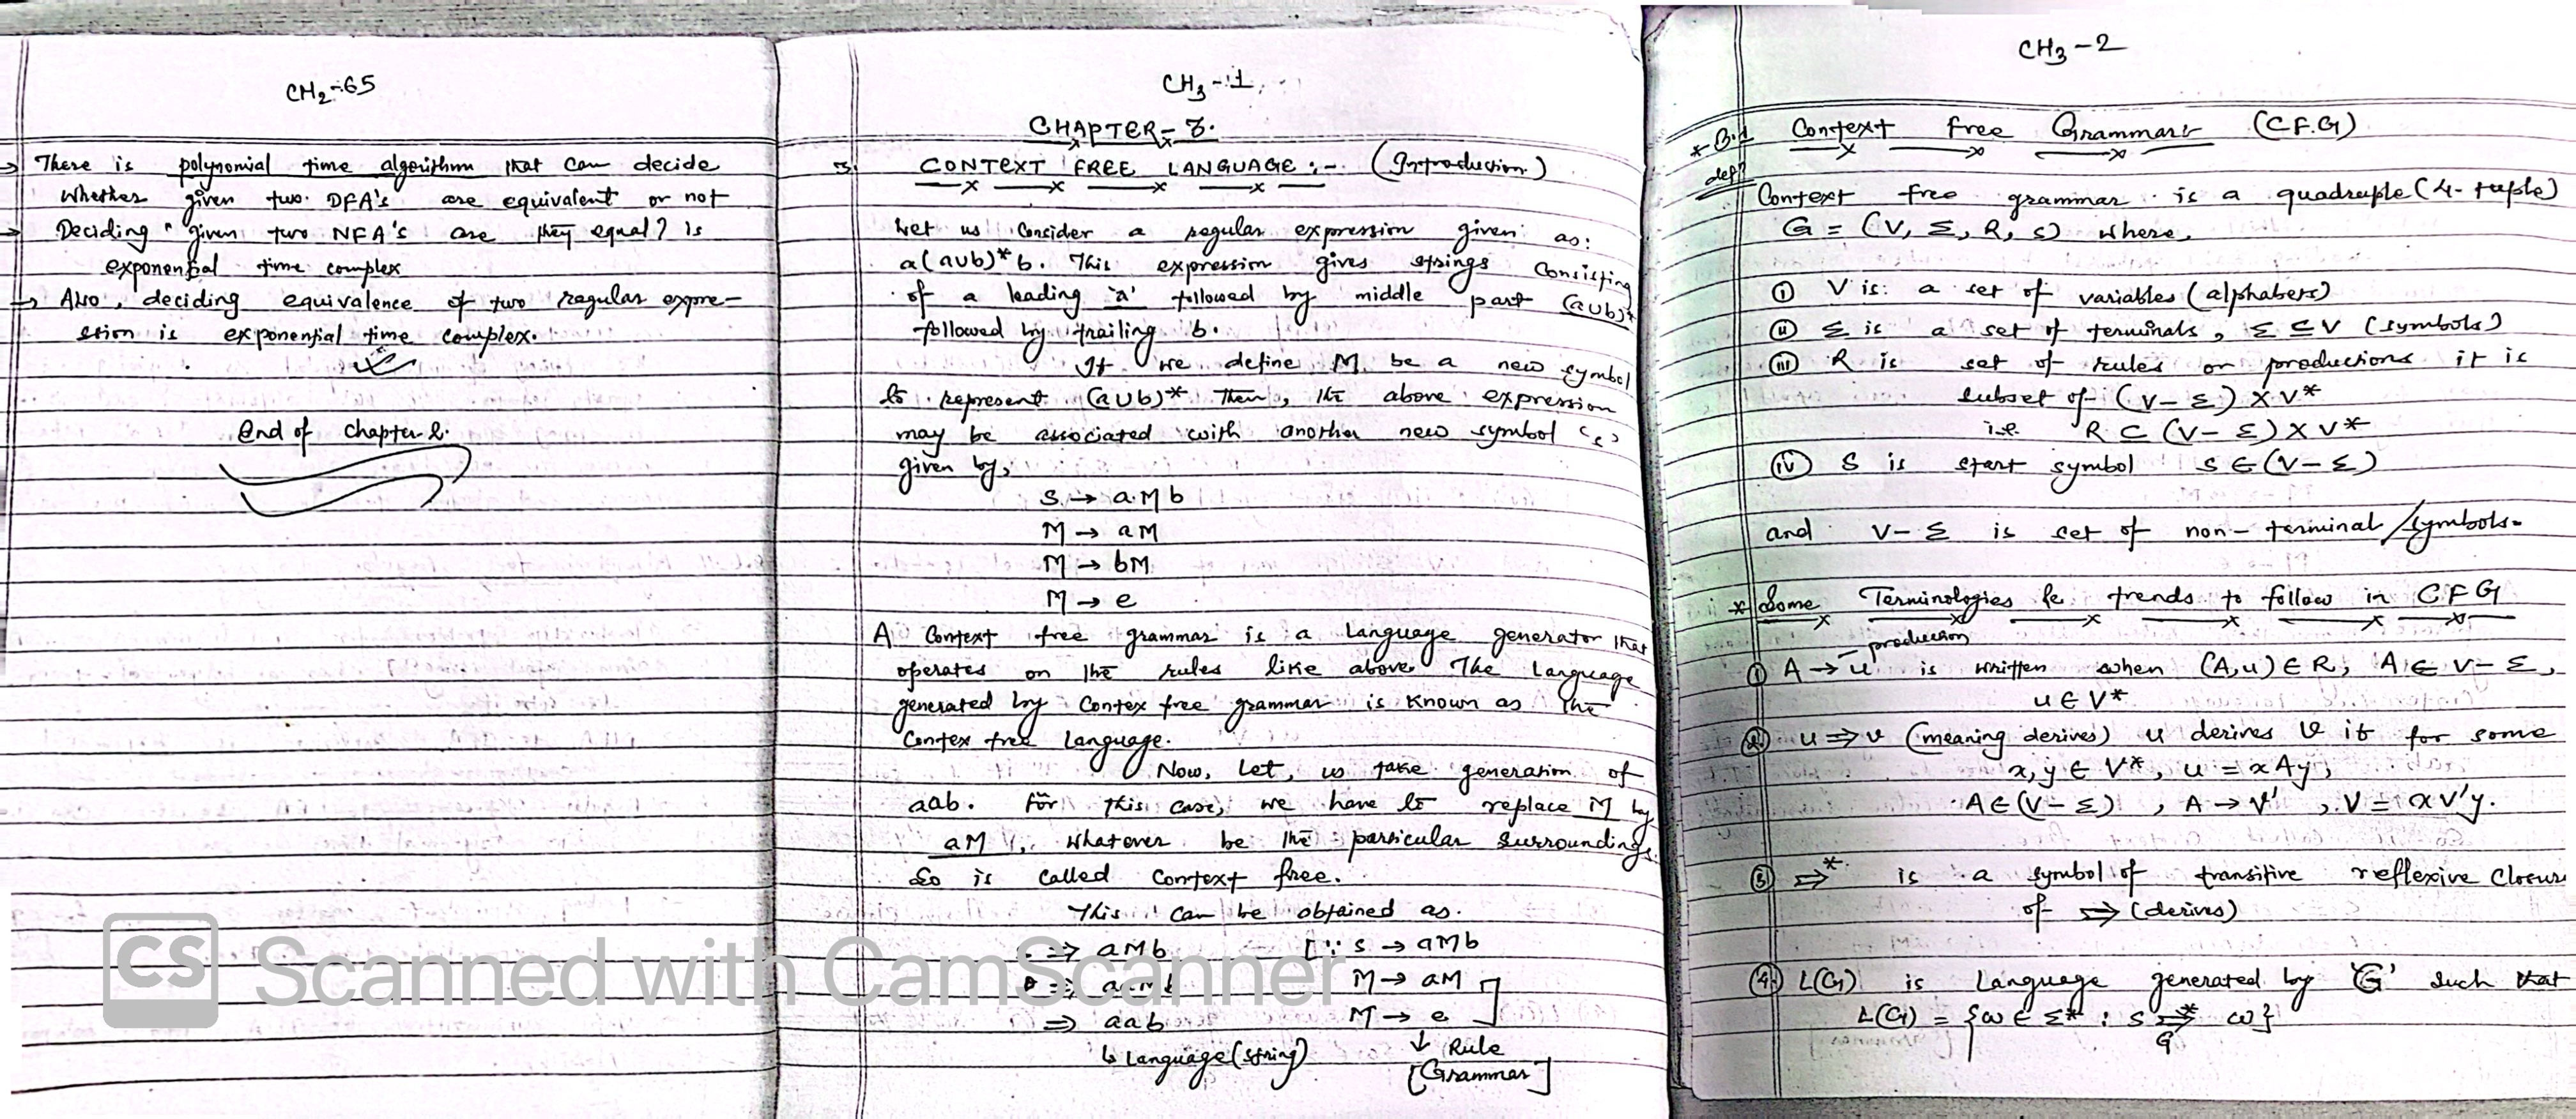 CH2-65
→ There is polynomial time algorithm that can decide
whether given two DFA's are equivalent or not
→ Deciding "given two NFA's are they equal? is
exponential time complex
→ Also, deciding equivalence of two regular expre-
ssion is exponential time complex.
End of Chapter 2.
CH3-1
CHAPTER-3.
3. CONTEXT FREE LANGUAGE :- (Introduction)
Let us consider a regular expression given as:
a(aub)*b. This expression gives strings consisting
of a leading 'a' followed by middle part (aub)*
followed by trailing b.
If we define M be a new symbol
to represent (aub)* Then, the above expression
may be associated with another new symbol 's'
given by,
S → aMb
M → aM
M → bM
M → e
A Context free grammar is a language generator that
operates on the rules like above. The Language
generated by Contex free grammar is known as the
Contex free Language.
Now, Let, us take generation of
aab. For this case, we have to replace M by
aM, whatever be the particular surroundings
So is called Context free.
This can be obtained as.
⇒ aMb [∵ S → aMb
⇒ aaMb M → aM
⇒ aab M → e ]
↳ Language (string) ↓ Rule
[Grammar]
CH3-2
* 3.1 Context free Grammars (C.F.G)
defn
Context free grammar is a quadruple (4-tuple)
G = (V, Σ, R, S) where,
(i) V is a set of variables (alphabets)
(ii) Σ is a set of terminals, Σ ⊆ V (symbols)
(iii) R is set of rules or productions it is
subset of (V-Σ) X V*
i.e. R ⊂ (V-Σ) X V*
(iv) S is start symbol S ∈ (V-Σ)
and V-Σ is set of non-terminal/symbols.
* Some Terminologies & trends to follow in CFG
- production
(1) A → u is written when (A,u) ∈ R, A ∈ V-Σ,
u ∈ V*
(2) u ⇒ v (meaning derives) u derives v if for some
x,y ∈ V*, u = xAy,
A ∈ (V-Σ), A → V', V = xV'y.
(3) ⇒* is a symbol of transitive reflexive Closure
of ⇒ (derives)
(4) L(G) is Language generated by 'G' such that
L(G) = {w ∈ Σ* : S ⇒*G w}
CS Scanned with CamScanner